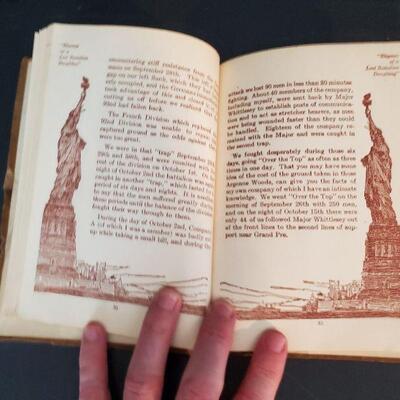 "History
of a
Lost Battalion
Doughboy"
encountering stiff resistance from the
mans on September 28th. This left
gap on our left flank, which the
occupied, and the Germans
took advantage of this and closed in
suring us of before we noticed that
92nd had fallen back.
The French Division which replaced
92nd Division was unable to
captured ground as the odds against
were too great.
We were in that "trap" September
29th and 30th, and were relieved
of the division on October 1st. On
night of October 2nd the battalion was
caught in another "trap," which lasted
period of six days and nights. I needn't
to say that the men suffered greatly
these periods until the balance of the division
fought their way through to them.
During the day of October 2nd, Company
A (of which I was a member) was badly
up while taking a small hill, and during the
30
"History
of a
Lost Battalion
Doughboy"
attack we lost 90 men in less than 30 minutes
fighting. About 40 members of the company,
including myself, were sent back by Major
Whittlesey to establish posts of communica-
tion and to act as stretcher bearers, as men
were being wounded faster than they could
be handled. Eighteen of the company re-
mained with the Major and were caught in
the second trap.
We fought desperately during those six
days, going "Over the Top" as often as three
times in one day. That you may have some
idea of the cost of the ground taken in those
Argonne Woods, can give you the facts of
my own company of which I have an intimate
knowledge. We went "Over the Top" on the
morning of September 26th with 250 men,
and on the night of October 15th there were
only 44 of us followed Major Whittlesey out
of the front lines to the second lines of sup-
port near Grand Pre.
31